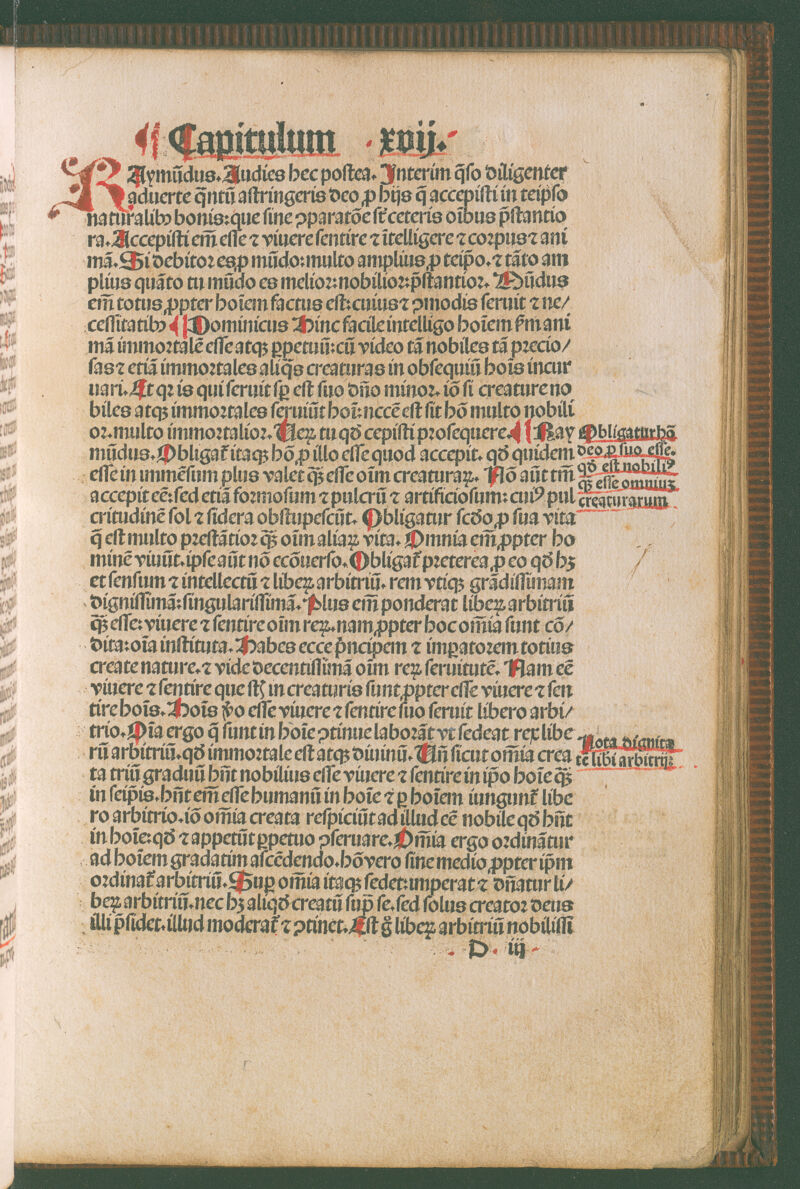 ¶ Capitulum .xvij.
RAymūdus. Audies hec poſtea. Interim q̄ſo diligenter
aduerte q̄ntū aſtringeris deo ꝓ hijs q̄ accepiſti in teipſo
naturalibꝰ bonis: que ſine ꝯparatōe ſt̄ ceteris oībus p̄ſtantio
ra. Accepiſti em̄ eſſe ⁊ viuere ſentire ⁊ ītelligere ⁊ corpus ⁊ ani
mā. Si debitor es ꝓ mūdo: multo amplius ꝓ teip̄o. ⁊ tāto am
plius quāto tu mūdo es melior: nobilior: p̄ſtantior. Mūdus
em̄ totus ꝓpter hoīem factus eſt: cuius ⁊ ꝯmodis ſeruit ⁊ ne/
ceſſitatibꝰ ¶ Dominicus Hinc facile intelligo hoīem ẜm ani
mā immortalē eſſe atqꝫ ꝑpetuū: cū video tā nobiles tā precio/
ſas ⁊ etiā immortales aliq̄s creaturas in obſequiū hoīs incur
uari. At qꝛ is qui ſeruit ſꝑ eſt ſuo dn̄o minor. iō ſi creature no
biles atqꝫ immortales ſeruiūt hoī: nccē eſt ſit hō multo nobili
or. multo immortalior. Veꝝ tu qđ cepiſti proſequere. ¶ Ray
mūdus. Obligat᷑ itaqꝫ hō ꝓ illo eſſe quod accepit. qđ quidem
eſſe in immēſum plus valet q̄ꝫ eſſe oīm creaturaꝝ. Nō aūt tm̄
accepit eē: ſed etiā formoſum ⁊ pulcrū ⁊ artificioſum: cuiꝰ pul
critudinē ſol ⁊ ſidera obſtupeſcūt. Obligatur ſcđo ꝓ ſua vita
q̄ eſt multo preſtātior q̄ꝫ oīm aliaꝝ vita. Omnia em̄ ꝓpter ho
minē viuūt. ipſe aūt nō ecōuerſo. Obligat᷑ preterea ꝓ eo qđ hꝫ
et ſenſum ⁊ intellectū ⁊ libeꝝ arbitriū. rem vtiqꝫ grādiſſimam
digniſſimā: ſingulariſſimā. Plus em̄ ponderat libeꝝ arbitriū
q̄ꝫ eſſe: viuere ⁊ ſentire oīm reꝝ. nam ꝓpter hoc om̄ia ſunt cō/
dita: oīa inſtituta. Habes ecce p̄ncipem ⁊ imꝑatorem totius
create nature. ⁊ vide decentiſſimā oīm reꝝ ſeruitutē. Nam eē
viuere ⁊ ſentire que ſꝫ in creaturis ſunt ꝓpter eſſe viuere ⁊ ſen
tire hoīs. Hoīs ṽo eſſe viuere ⁊ ſentire ſuo ſeruit libero arbi/
trio. Oīa ergo q̄ ſunt in hoīe ꝯtinue laborāt vt ſedeat rex libe
rū arbitriū. qđ immortale eſt atqꝫ diuinū. Vn̄ ſicut om̄ia crea
ta triū graduū hn̄t nobilius eſſe viuere ⁊ ſentire in ip̄o hoīe q̄ꝫ
in ſeip̄is. hn̄t em̄ eſſe humanū in hoīe ⁊ ꝑ hoīem iungunt᷑ libe
ro arbitrio. iō om̄ia creata reſpiciūt ad illud eē nobile qđ hn̄t
in hoīe: qđ ⁊ appetūt ꝑpetuo ꝯſeruare. Om̄ia ergo ordinātur
ad hoīem gradatim aſcēdendo. hō vero ſine medio ꝓpter ip̄m
ordinat᷑ arbitriū. Suꝑ om̄ia itaqꝫ ſedet: imperat ⁊ dn̄atur li/
beꝝ arbitriū. nec hꝫ aliqđ creatū ſup̄ ſe. ſed ſolus creator deus
illi p̄ſidet. illud moderat᷑ ⁊ ꝯtinet. Eſt g̊ libeꝝ arbitriū nobiliſſi
Obligatur hō
deo ꝓ ſuo eſſe.
qđ eſt nobiliꝰ
q̄ꝫ eſſe omniuꝫ
creaturarum
Nota dignita
tē libi arbitrij:
D. iij